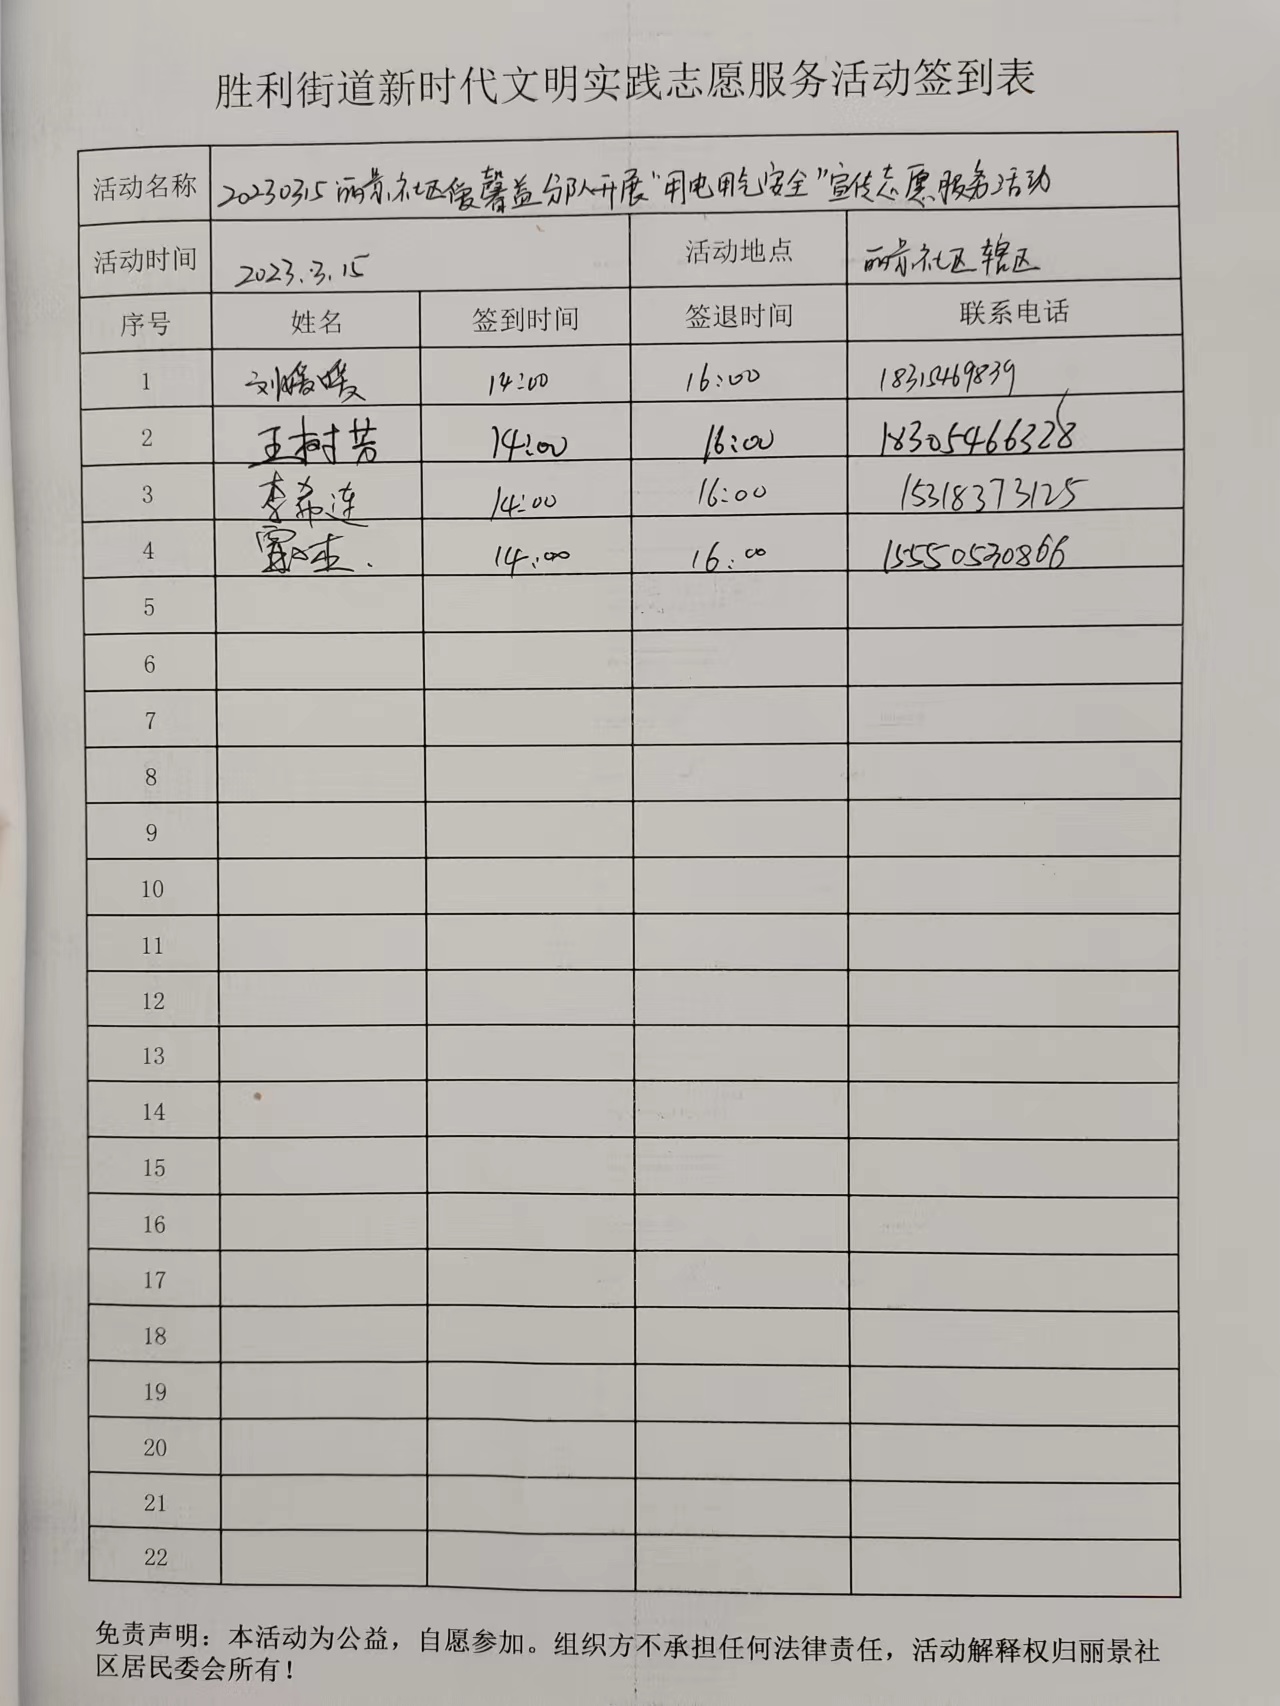 胜利街道新时代文明实践志愿服务活动签到表
活动名称 20230315丽景社区馨益分队开展“用电用气安全”宣传志愿服务活动
活动时间 2023.3.15 活动地点 丽景社区辖区
序号 姓名 签到时间 签退时间 联系电话
1 刘媛媛 14:00 16:00 18315469839
2 王树芳 14:00 16:00 18305466328
3 李希连 14:00 16:00 15318373125
4 14:00 16:00 15550530866
5
6
7
8
9
10
11
12
13
14
15
16
17
18
19
20
21
22
免责声明：本活动为公益，自愿参加。组织方不承担任何法律责任，活动解释权归丽景社
区居民委会所有！